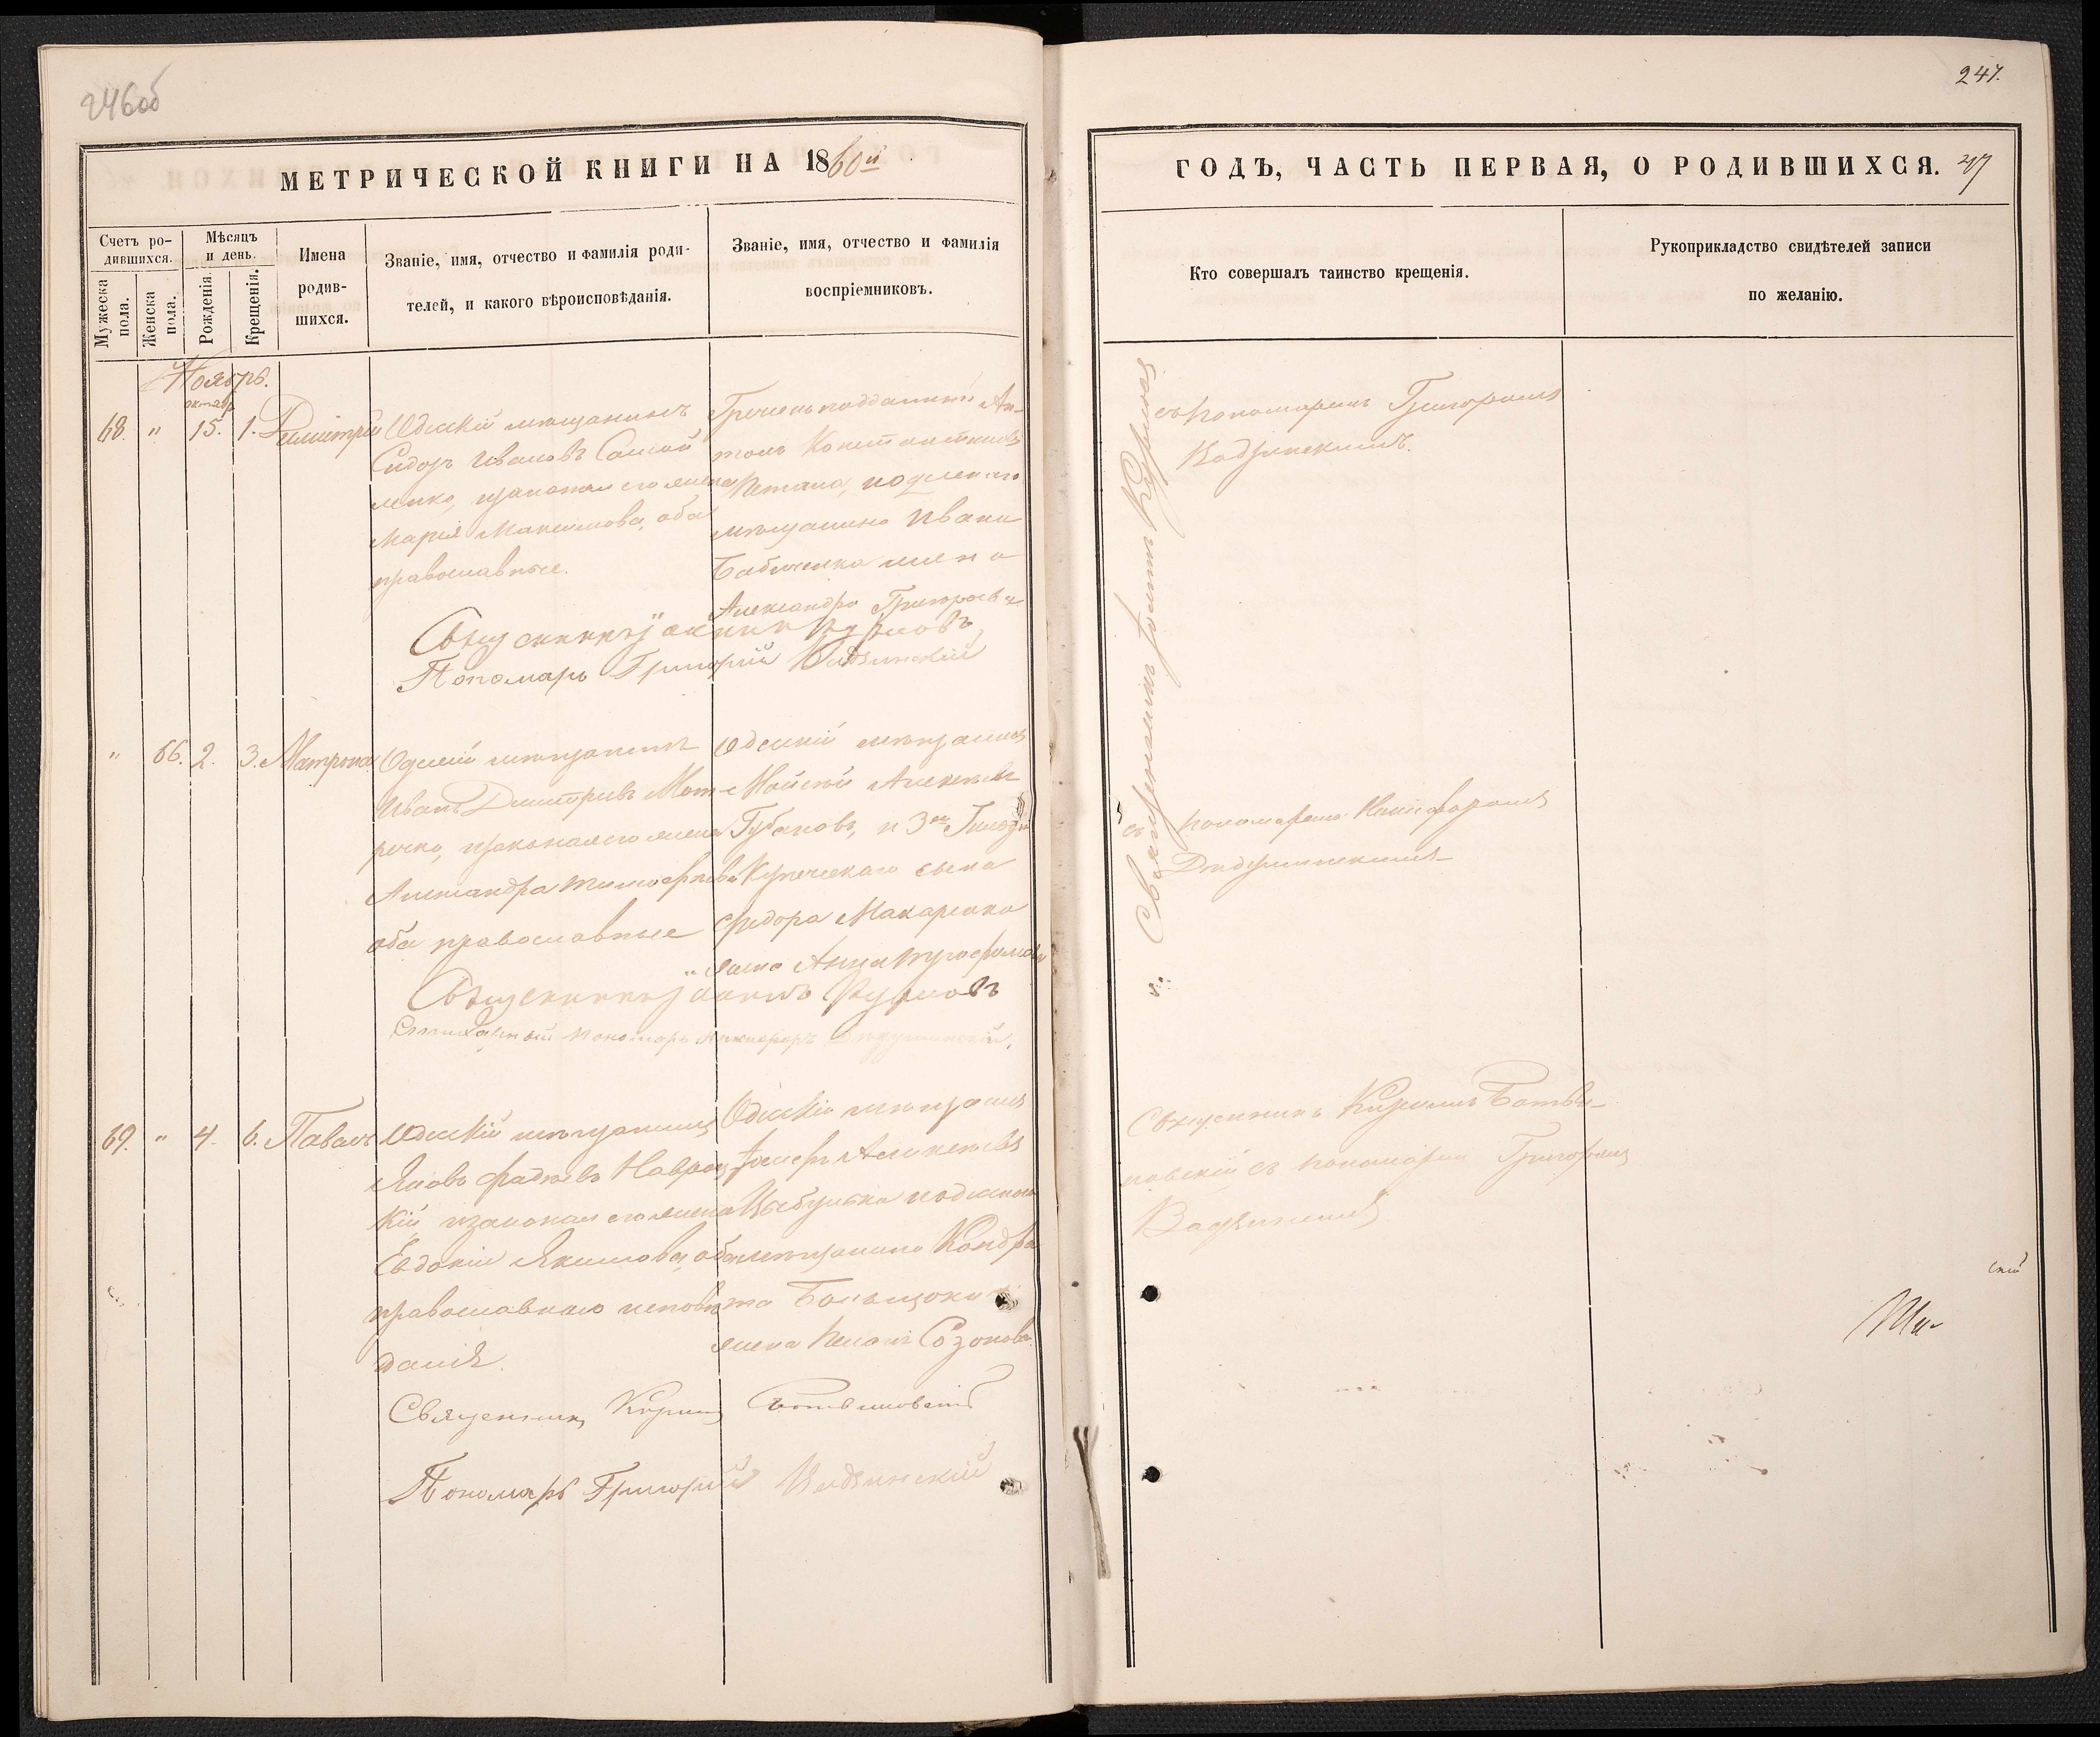 246об
МЕТРИЧЕСКОЙ КНИГИ НА 1860й
Счетъ ро-
дившихся.
Мужеска пола.
Женска пола.
Мѣсяцъ
и день.
Рожденія.
Крещенія.
Имена
родив-
шихся.
Званіе, имя, отчество и фамилія роди-
телей, и какого вѣроисповѣданія.
Званіе, имя, отчество и фамилія
воспріемниковъ.
Ноябрь.
октябр
68. " 15. 1. Димитрій
Одесскій мѣщанинъ
Сидоръ Ивановъ Самой
ленко, и законная его жена
Марія Максимова, оба
православные.
Греческоподданный Ан-
тонъ Константиновъ
и одесскаго
мѣщанина Ивана
Бабиченка жена
Александра Григорьева
Священникъ Іоаннъ Курловъ
Пономарь Григорій
" 66. 2. 3. Матрона
Одесскій мѣщанинъ
Иванъ Димитріевъ Мот-
ренко, и законная его жена
Александра Тимофѣева
оба православные
Одесскій мѣщанинъ
Мойсей Алексѣевъ
Губановъ, и 3ей Гильдіи
Купеческаго сына
Федора Макаренко
жена Анна
Священникъ Іоаннъ Курловъ
Стихарный Пономарь Никифоръ
69. " 4. 6. Павелъ
Одесскій мѣщанинъ
Яковъ Фадѣевъ Навроц
кій, и законная его жена
Евдокія Якимова, оба
православнаго исповѣ
данія.
Одесскій мѣщанинъ
Іосифъ Алексѣевъ
Цыбулька и одесскаго
мѣщанина Кондра
та
жена Созонова
Священникъ Кирилъ Ботвиновскій
Пономарь Григорій
247.
ГОДЪ, ЧАСТЬ ПЕРВАЯ, О РОДИВШИХСЯ. 247
Кто совершалъ таинство крещенія.
Рукоприкладство свидѣтелей записи
по желанію.
Священникъ Іоаннъ Курловъ
съ пономаремъ Григоріемъ
съ пономаремъ Никифоромъ
Священникъ Кирилъ Ботви-
новскій съ пономаремъ Григоріемъ
скій